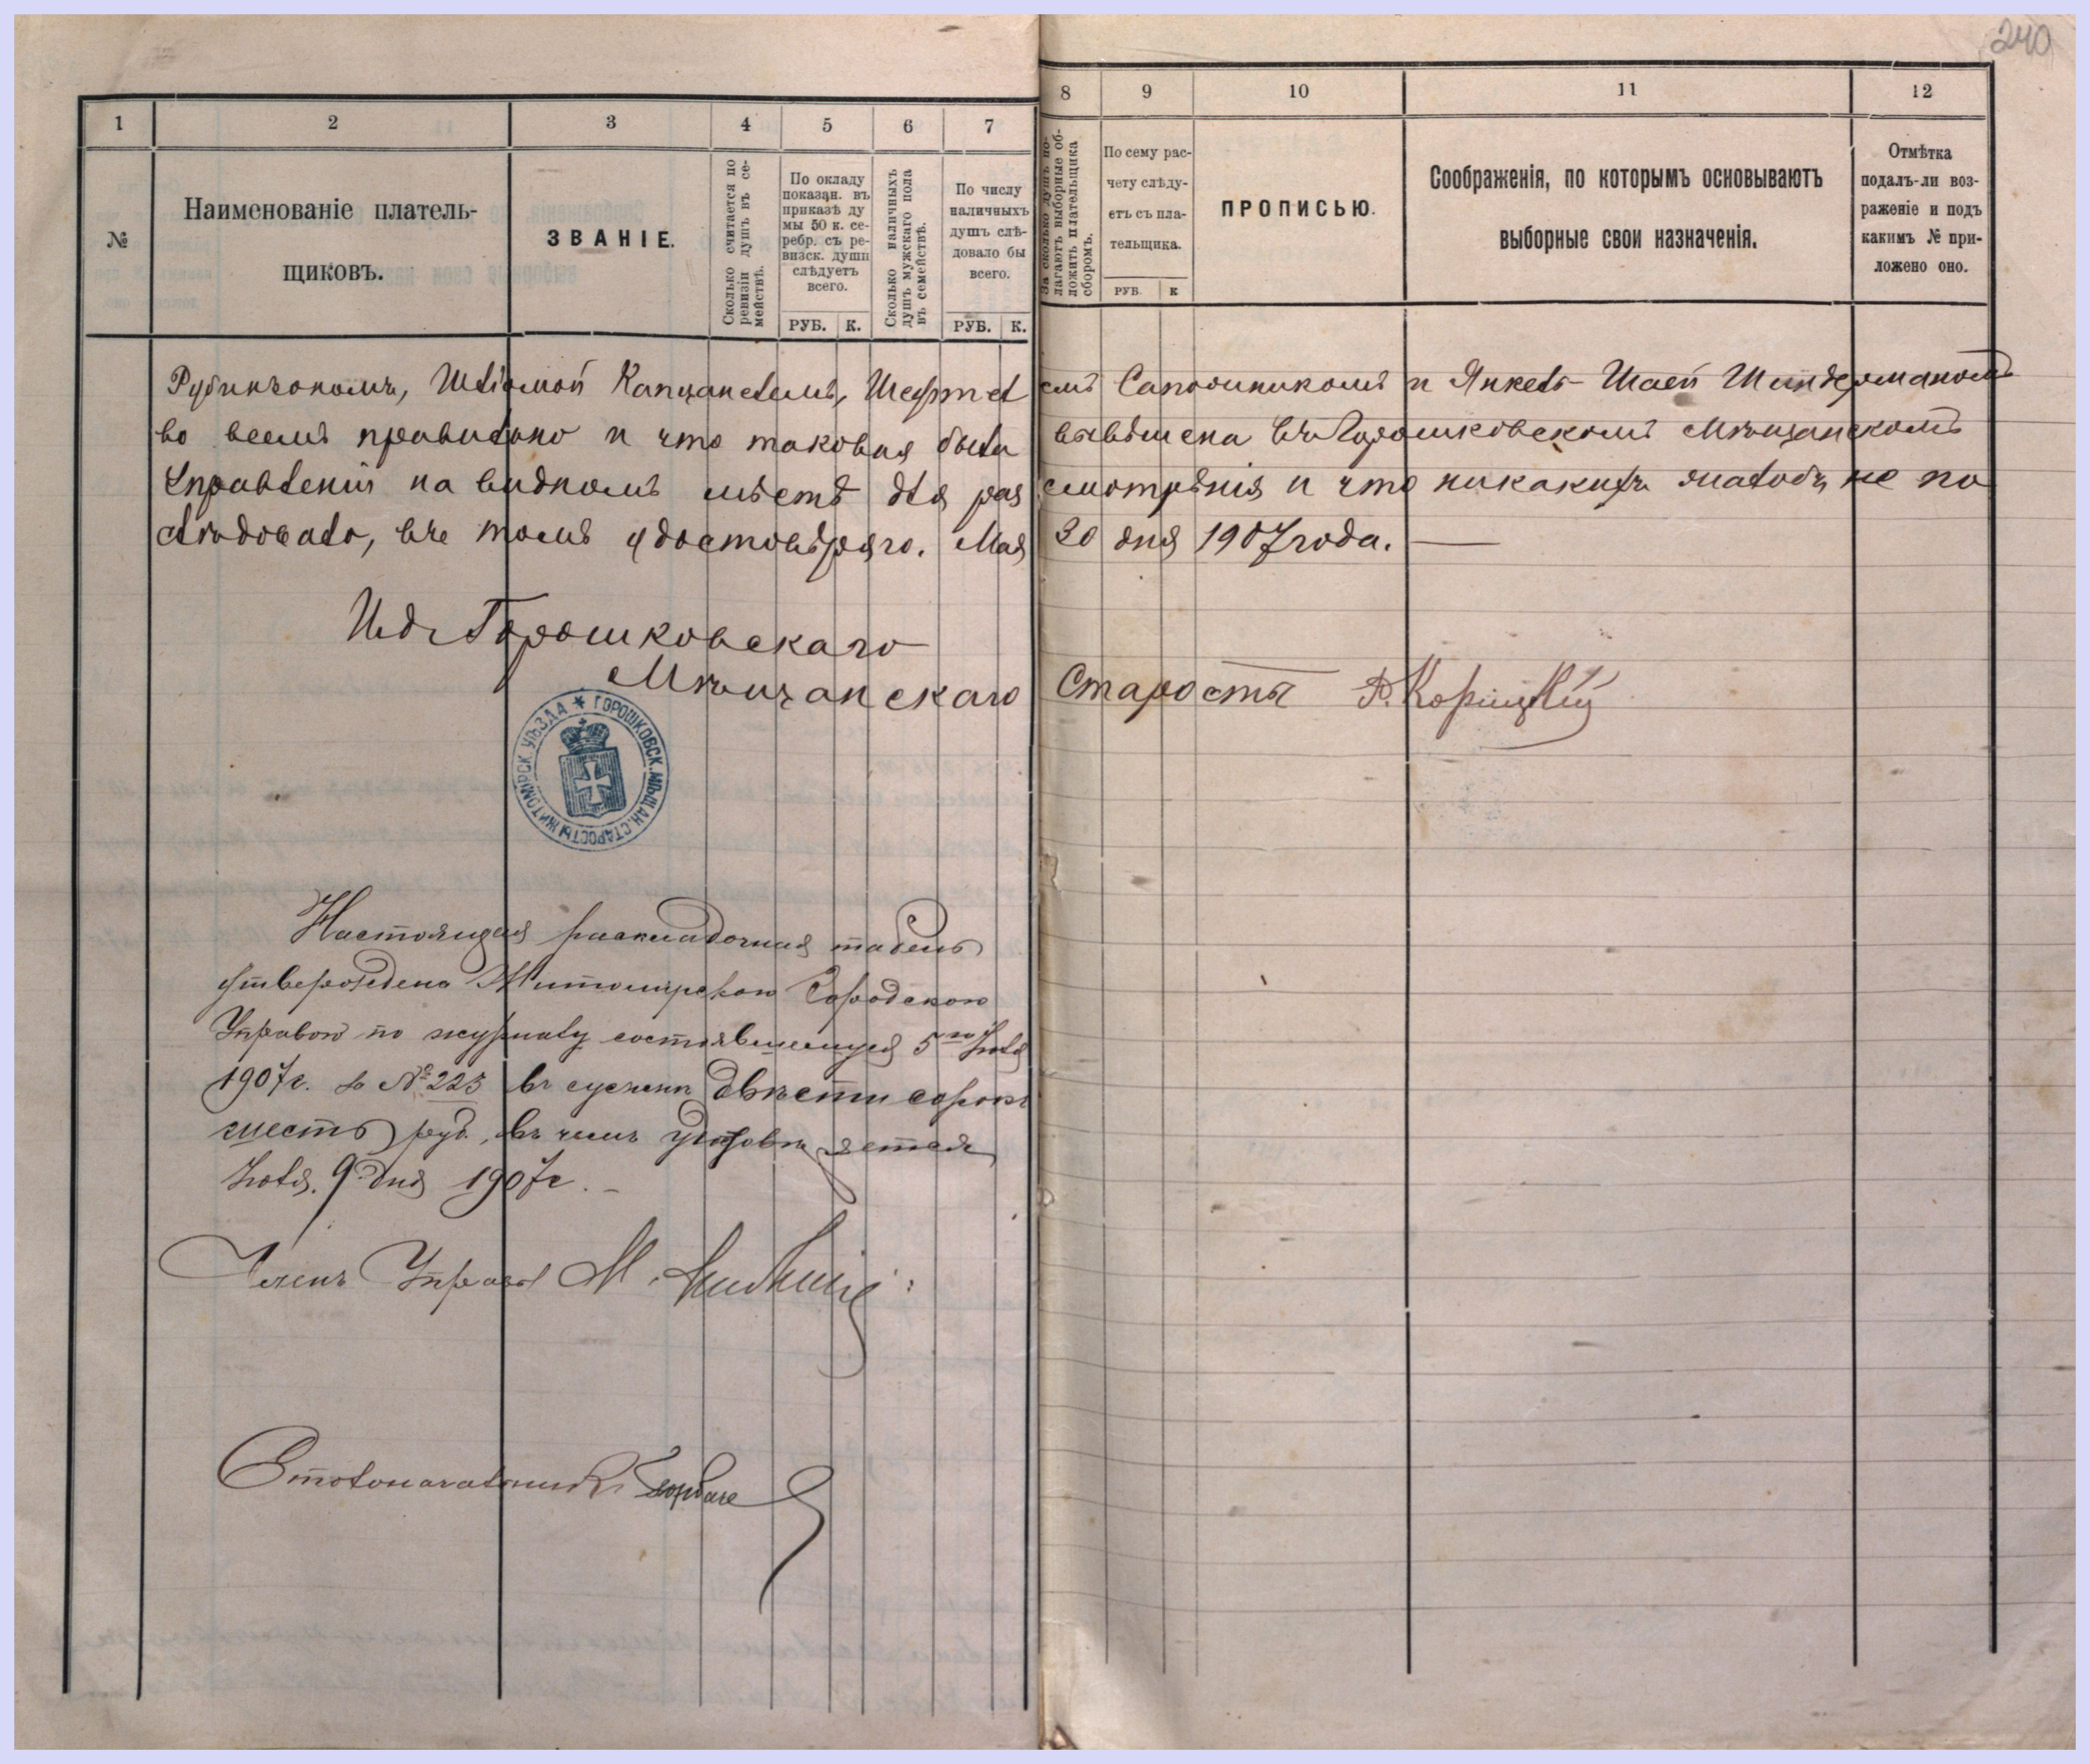 240
1 2 3 4 5 6 7 8 9 10 11 12
№
Наименованіе платель-
щиковъ.
ЗВАНІЕ.
Сколько считается по
ревизіи душъ въ се-
мействѣ.
По окладу
показан. въ
приказѣ ду
мы 50 к. се-
ребр. съ ре-
визск. души
слѣдуетъ
всего.
РУБ. К.
Сколько наличныхъ
душъ мужскаго пола
въ семействѣ.
По числу
наличныхъ
душъ слѣ-
довало бы
всего.
РУБ. К.
За сколько душъ по-
лагаютъ выборные об-
ложить плательщика
сборомъ.
По сему рас-
чету слѣду-
етъ съ пла-
тельщика.
РУБ. К
ПРОПИСЬЮ.
Соображенія, по которымъ основываютъ
выборные свои назначенія.
Отмѣтка
подалъ-ли воз-
раженіе и подъ
какимъ № при-
ложено оно.
Рубинчономъ, Шлёмой Капцанелемъ, Шефтелемъ Сапожникомъ и Янкель-Шаей Шиндерманомъ
во всемъ правильно и что таковая была вывѣшена въ Горошковскомъ Мѣщанскомъ
Управленіи на видномъ мѣстѣ для разсмотрѣнія и что никакихъ жалобъ не по
слѣдовало, въ томъ удостовѣряю. Мая 30 дня 1907 года.
Ид. Горошковскаго
Мѣщанскаго Старосты Корицкій
ГОРОШКОВСК. МѢЩАН. СТАРОСТЫ ЖИТОМІРСК. УѢЗДА
Настоящая раскладочная табель
утверждена Житомирскою Городскою
Управою по журналу состоявшемуся 5го Іюля
1907 г. за № 223 въ суммѣ двѣсти сорокъ
шесть руб., въ чемъ удостовѣряется
Іюля 9 дня 1907 г.
Членъ Управы М.
Столоначальникъ